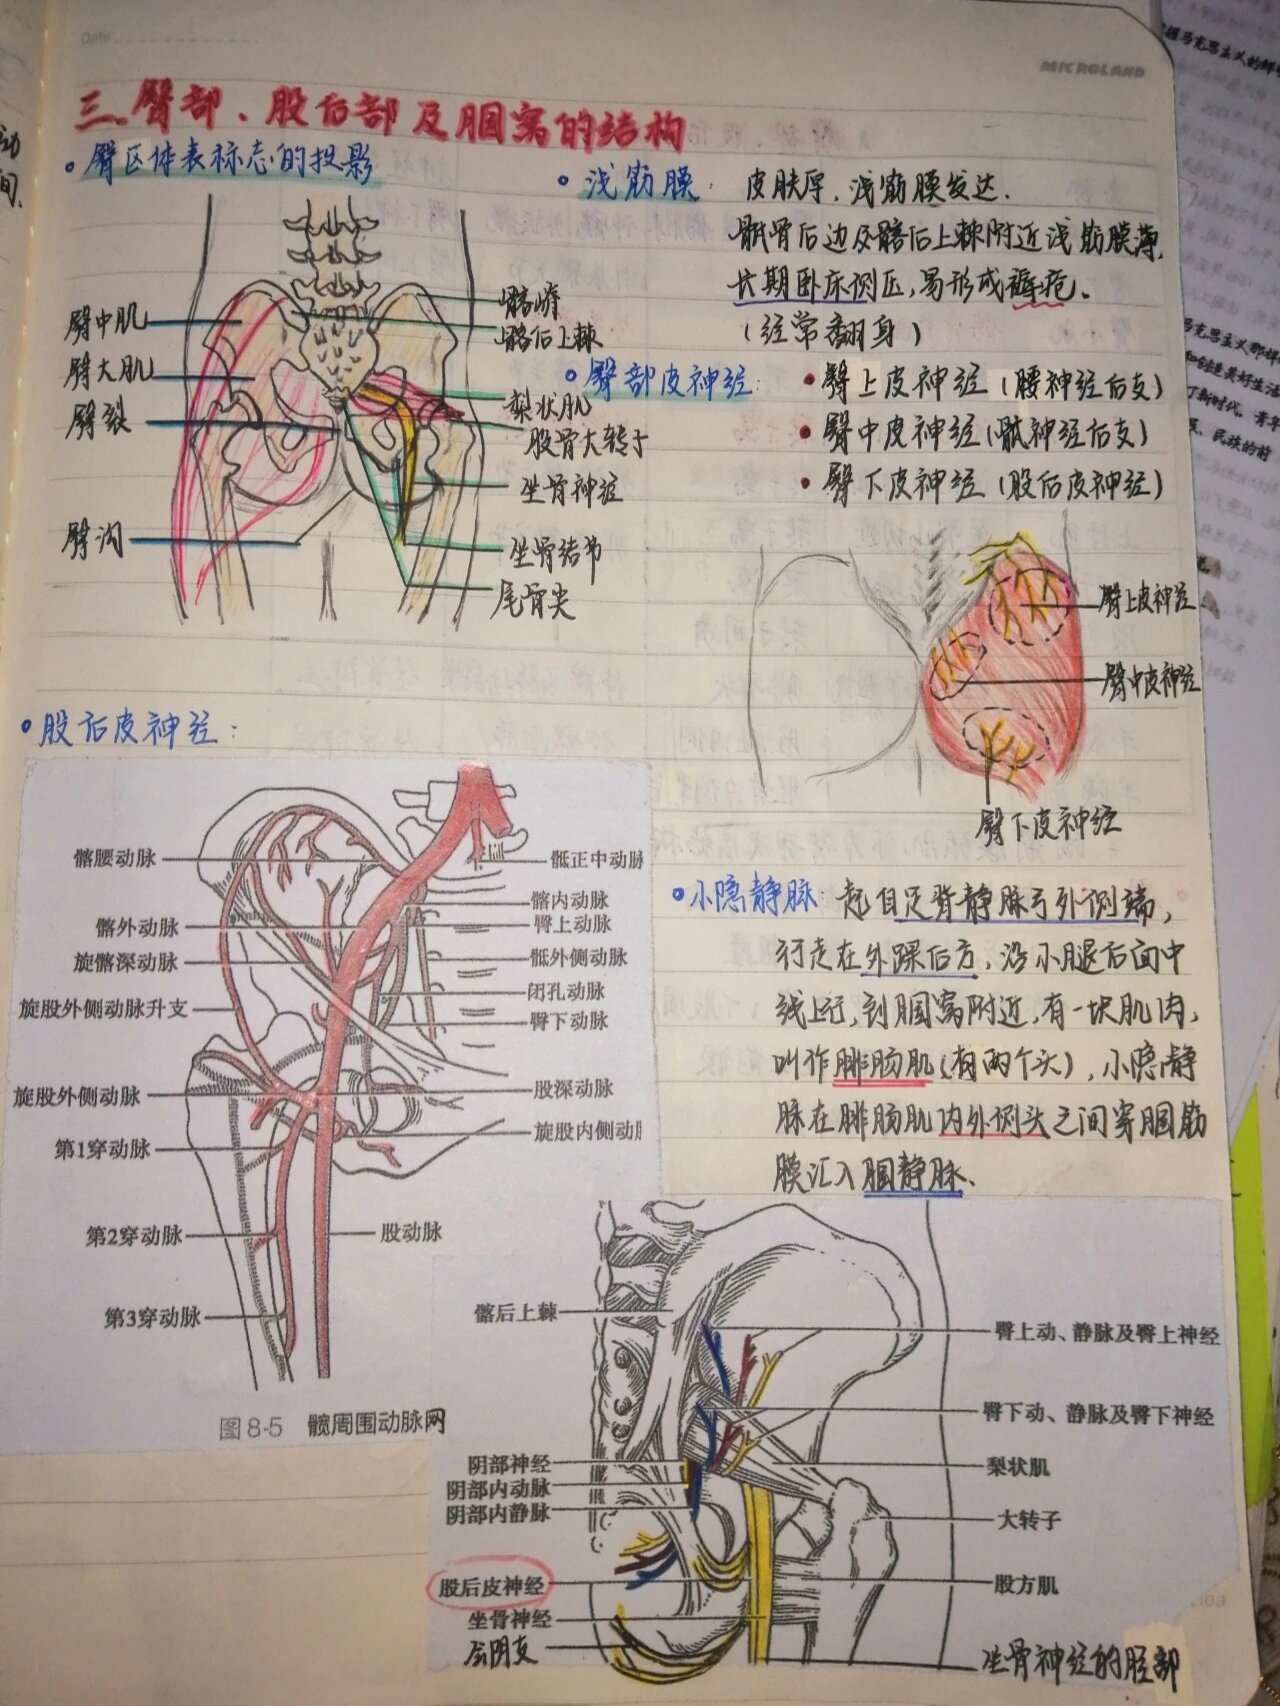 Date
MICROLAND
三、臀部、股后部及腘窝的结构
臀区体表标志的投影
臀中肌
臀大肌
臀裂
臀沟
髂嵴
髂后上棘
梨状肌
股骨大转子
坐骨神经
坐骨结节
尾骨尖
浅筋膜：皮肤厚，浅筋膜发达.
骶骨后边及髂后上棘附近浅筋膜薄,
长期卧床侧压,易形成褥疮、
(经常翻身)
臀部皮神经：
臀上皮神经(腰神经后支)
臀中皮神经(骶神经后支)
臀下皮神经(股后皮神经)
臀上皮神经
臀中皮神经
臀下皮神经
股后皮神经：
髂腰动脉
髂外动脉
旋髂深动脉
旋股外侧动脉升支
旋股外侧动脉
第1穿动脉
第2穿动脉
第3穿动脉
骶正中动脉
髂内动脉
臀上动脉
骶外侧动脉
闭孔动脉
臀下动脉
股深动脉
旋股内侧动
股动脉
图8-5 髋周围动脉网
小隐静脉：起自足背静脉弓外侧端，
行走在外踝后方，沿小腿后面中
线上行,到腘窝附近,有一块肌肉,
叫作腓肠肌(有两个头),小隐静
脉在腓肠肌内外侧头之间穿腘筋
膜汇入腘静脉、
髂后上棘
阴部神经
阴部内动脉
阴部内静脉
股后皮神经
坐骨神经
会阴支
臀上动、静脉及臀上神经
臀下动、静脉及臀下神经
梨状肌
大转子
股方肌
坐骨神经的胫部